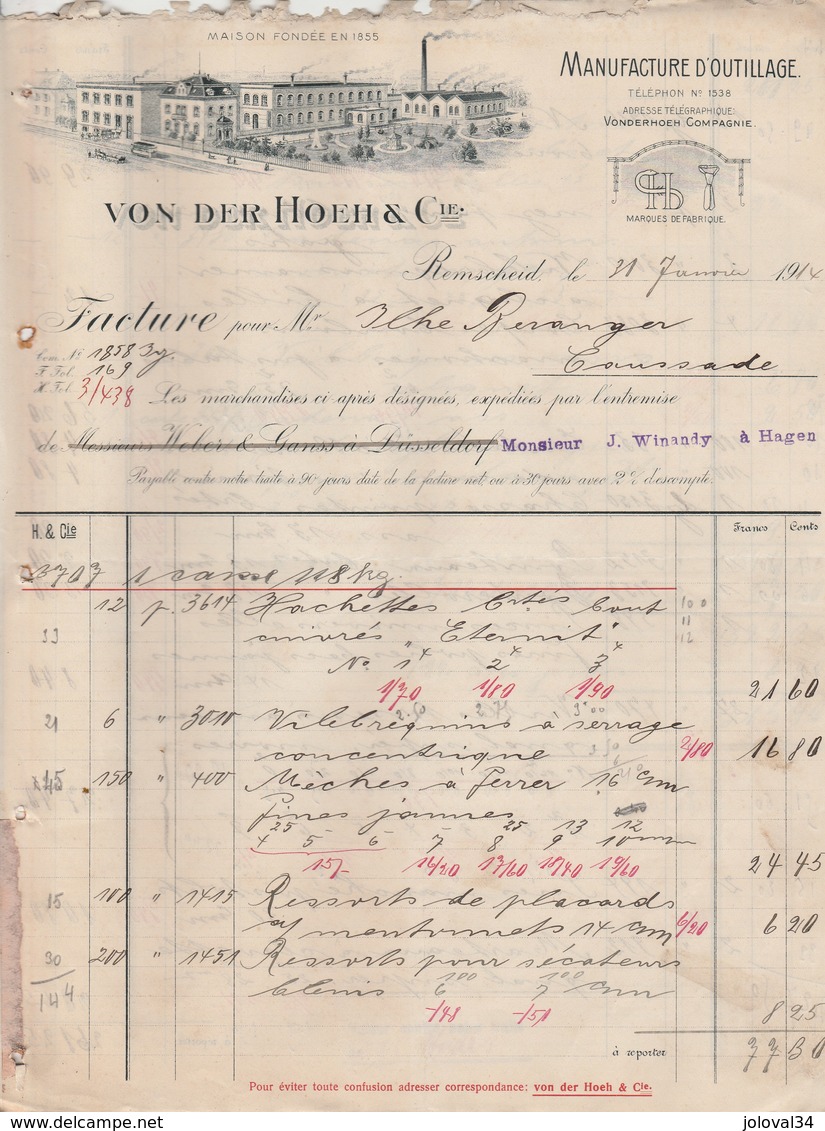 MAISON FONDÉE EN 1855
MANUFACTURE D'OUTILLAGE.
TÉLÉPHON No 1538
ADRESSE TÉLÉGRAPHIQUE:
VONDERHOEH COMPAGNIE.
MARQUES DE FABRIQUE.
VON DER HOEH & CIE.
Remscheid, le 31 Janvier 1914
Facture pour Mr Ilhe Beranger
Caussade
Com. No 1858
F. Fol. 169
H. Fol. 3/438
Les marchandises ci-après désignées, expédiées par l'entremise
de Messieurs Weber & Ganss à Düsseldorf Monsieur J. Winandy à Hagen
Payable contre notre traite à 90 jours date de la facture net, ou à 30 jours avec 2% d'escompte.
H. & Cie Francs Cents
1 caisse 118 kg.
12 p. 3614 Hachettes Crtés bout 100
33 cuivrés "Eternit" 11
12
No. 1 2 3
4 4 4
1/70 1/80 1/90 21 60
21 6 " 3010 Vilebrequins à serrage
concentrique 2/80 16 80
45 150 " 400 Mèches à ferrer 16 cm
fines jaunes
25 25 13 12
4 5 6 7 8 9 10 mm
15/- 16/20 17/60 18/40 19/60 24 45
15 100 " 1415 Ressorts de placards
a/ mentonnets 14 cm 6/20 6 20
30 200 " 1451 Ressorts pour sécateurs
144 blenis 6 7 cm
100 100
-/48 -/50 8 25
à reporter 77 30
Pour éviter toute confusion adresser correspondance: von der Hoeh & Cie.
https://www.delcampe.net
joloval34